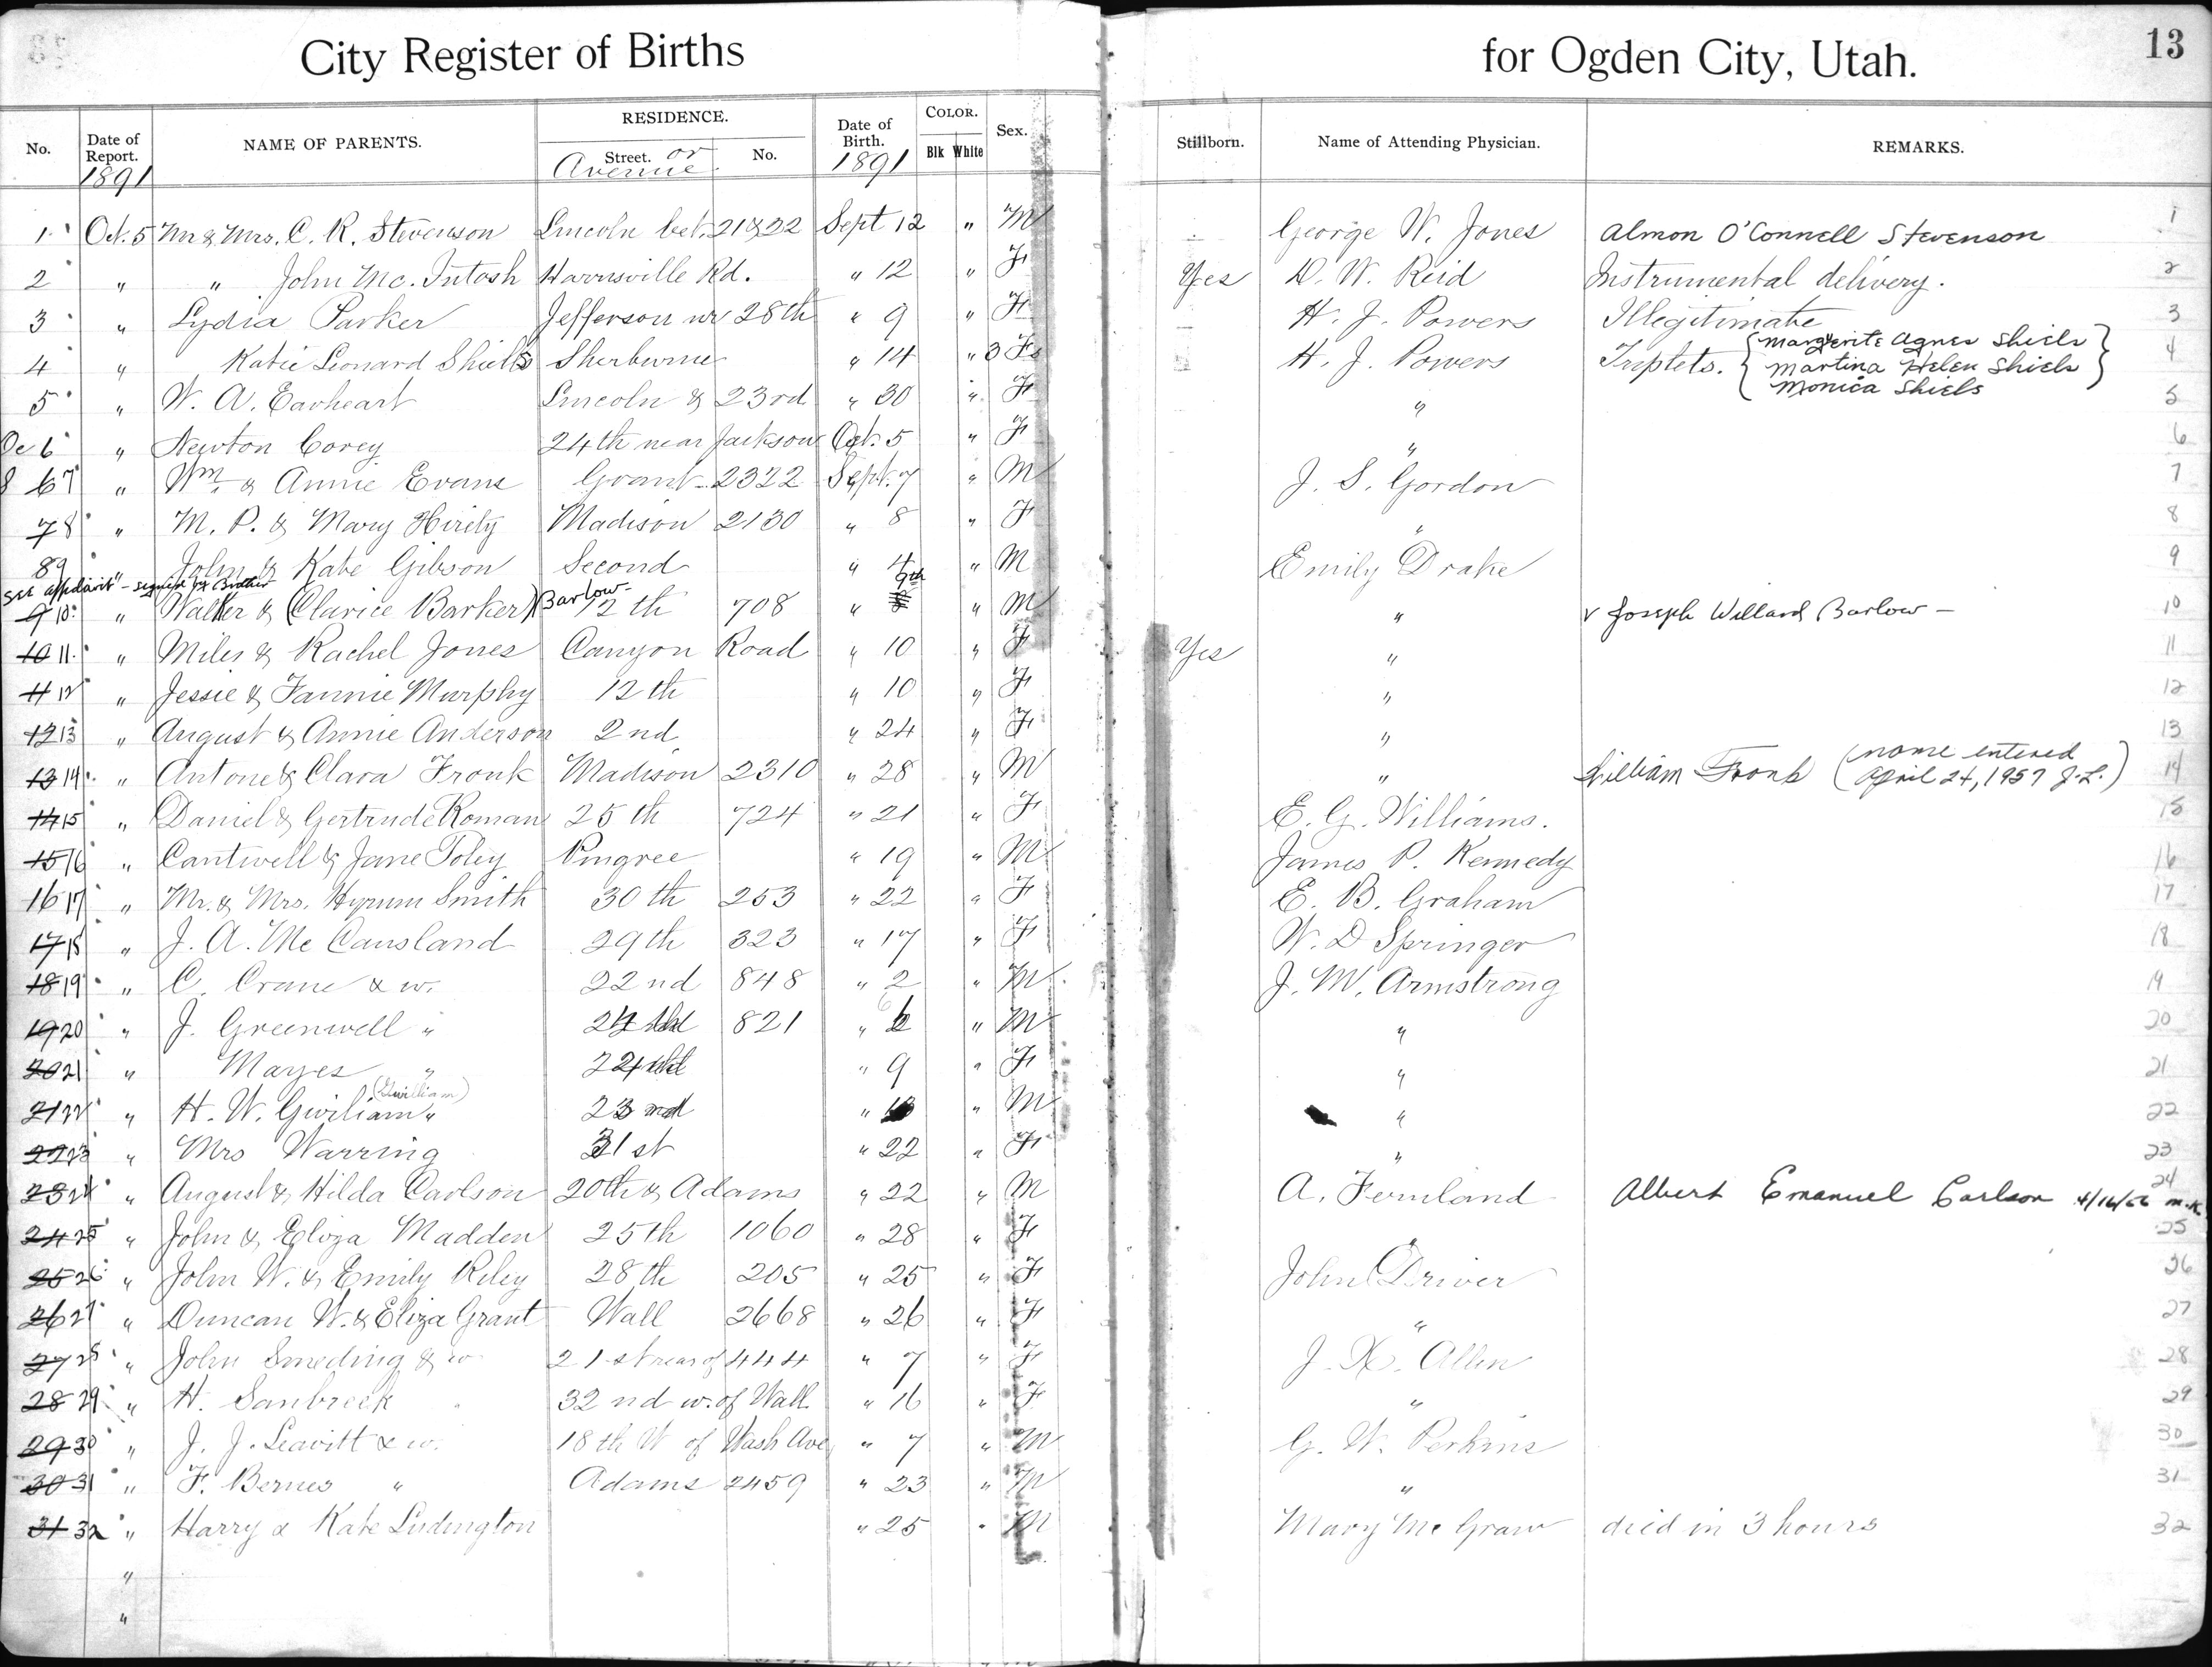 City Register of Births for Ogden City, Utah. 13
No. Date of Report. NAME OF PARENTS. RESIDENCE. Street. No. Date of Birth. COLOR. Blk White Sex. Stillborn. Name of Attending Physician. REMARKS.
1891 or Avenue 1891
1 Oct. 5 Mr & Mrs. C. R. Stevenson Lincoln bet. 21 & 22 Sept 12 " M George W. Jones Almon O'Connell Stevenson 1
2 " " John Mc. Intosh Harrisville Rd. " 12 " F Yes D. W. Reid Instrumental delivery. 2
3 " Lydia Parker Jefferson nr 28th " 9 " F H. J. Powers Illegitimate 3
4 " Katie Leonard Shiels Sherburne " 14 " 3 Fs H. J. Powers Triplets. { Marguerite Agnes Shiels Martina Helen Shiels Monica Shiels } 4
5 " W. A. Earheart Lincoln & 23rd " 30 " F " 5
6 " Newton Corey 24th near Jackson Oct. 5 " F " 6
6 7 " Wm. & Annie Evans Grant 2322 Sept. 7 " M J. S. Gordon 7
7 8 " M. P. & Mary Hirely Madison 2130 " 8 " F " 8
8 9 " John & Kate Gibson Second " 4 " M Emily Drake 9
See affidavit - signed by Brother
9 10 " Walter & (Clarice Barker) Barlow 12th 708 " 9th " M " v Joseph Willard Barlow - 10
10 11 " Miles & Rachel Jones Canyon Road " 10 " F Yes " 11
11 12 " Jessie & Fannie Murphy 12th " 10 " F " 12
12 13 " August & Annie Anderson 2nd " 24 " F " 13
13 14 " Antone & Clara Fronk Madison 2310 " 28 " M " William Fronk (name entered April 24, 1957 J.L.) 14
14 15 " Daniel & Gertrude Roman 25th 724 " 21 " F E. G. Williams. 15
15 16 " Cantwell & Jane Toley Pingree " 19 " M James P. Kennedy 16
16 17 " Mr. & Mrs. Hyrum Smith 30th 253 " 22 " F E. B. Graham 17
17 18 " J. A. Mc Causland 29th 323 " 17 " F W. D Springer 18
18 19 " C. Crane & w. 22nd 848 " 2 " M J. W. Armstrong 19
19 20 " J. Greenwell " 24th 821 " 6 " M " 20
20 21 " Mayes " " 9 " F " 21
21 22 " H. W. Gwiliam " (Gwilliam) 23rd " " M " 22
22 23 " Mrs Warring 31st " 22 " F " 23
23 24 " August & Hilda Carlson 20th & Adams " 22 " M A. Fernland Albert Emanuel Carlson 4/16/56 m.K. 24
24 25 " John & Eliza Madden 25th 1060 " 28 " F " 25
25 26 " John W. & Emily Riley 28th 205 " 25 " F John Driver 26
26 27 " Duncan W. & Eliza Grant Wall 2668 " 26 " F " 27
27 28 " John Smeding & w 21st rear of 444 " 7 " F J. X. Allen 28
28 29 " H. Sanbreck 32nd w. of Wall " 16 " F " 29
29 30 " J. J. Leavitt & w. 18th W of Wash Ave " 7 " M G. W. Perkins 30
30 31 " F. Bernes " Adams 2459 " 23 " M " 31
31 32 " Harry & Kate Ludington " 25 " M Mary Mc Graw died in 3 hours 32
"
"